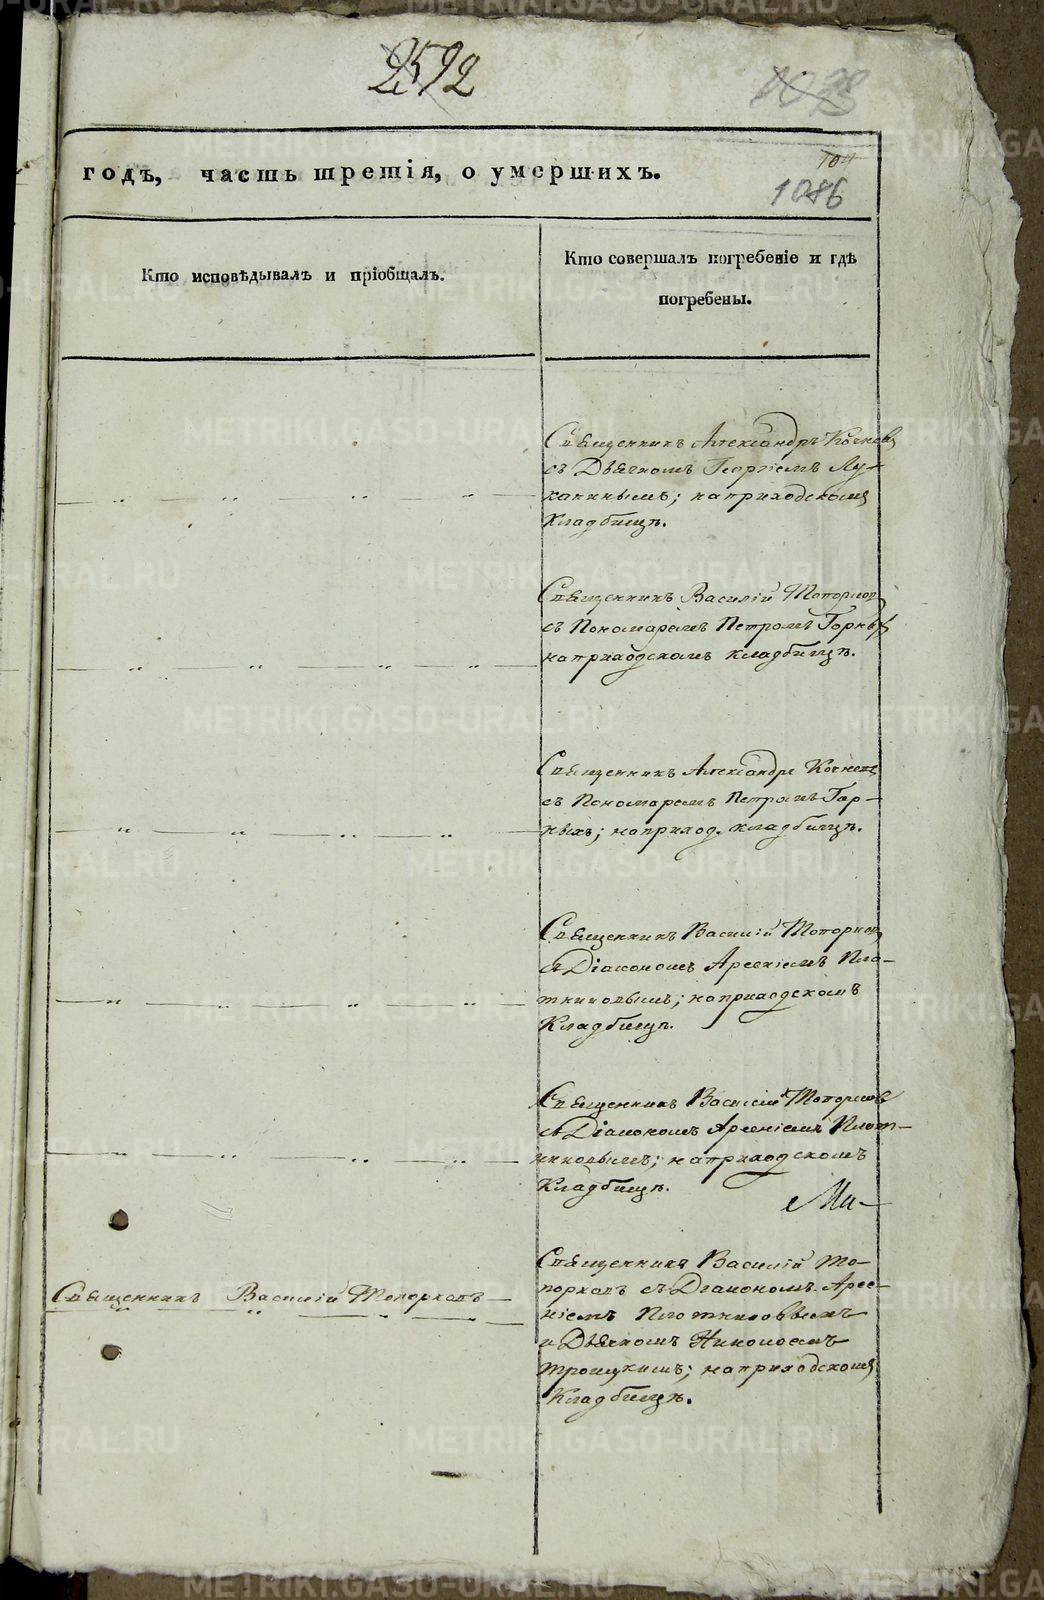 2592
104
1086
годъ, часть третія, о умершихъ.
Кто исповѣдывалъ и пріобщалъ.
Кто совершалъ погребеніе и гдѣ
погребены.
Священникъ Александръ Кочневъ
съ Дьячкомъ Георгіемъ Лу-
канинымъ; на приходскомъ
Кладбищѣ.
Священникъ Василій Топорковъ
съ Пономаремъ Петромъ Горныхъ
на приходскомъ кладбищѣ.
Священникъ Александръ Кочневъ
съ Пономаремъ Петромъ Гор-
ныхъ; на приход. кладбищѣ.
Священникъ Василій Топорковъ
съ Діакономъ Арсеніемъ Пло-
тниковымъ; на приходскомъ
Кладбищѣ.
Священникъ Василій Топорковъ
съ Діакономъ Арсеніемъ Плот-
никовымъ; на приходскомъ
Кладбищѣ.
Ма-
Священникъ Василій Топорковъ
Священникъ Василій То-
порковъ съ Діакономъ Арсе-
ніемъ Плотниковымъ
и Дьячкомъ Николаемъ
Троицкимъ; на приходскомъ
Кладбищѣ.
METRIKI.GASO-URAL.RU